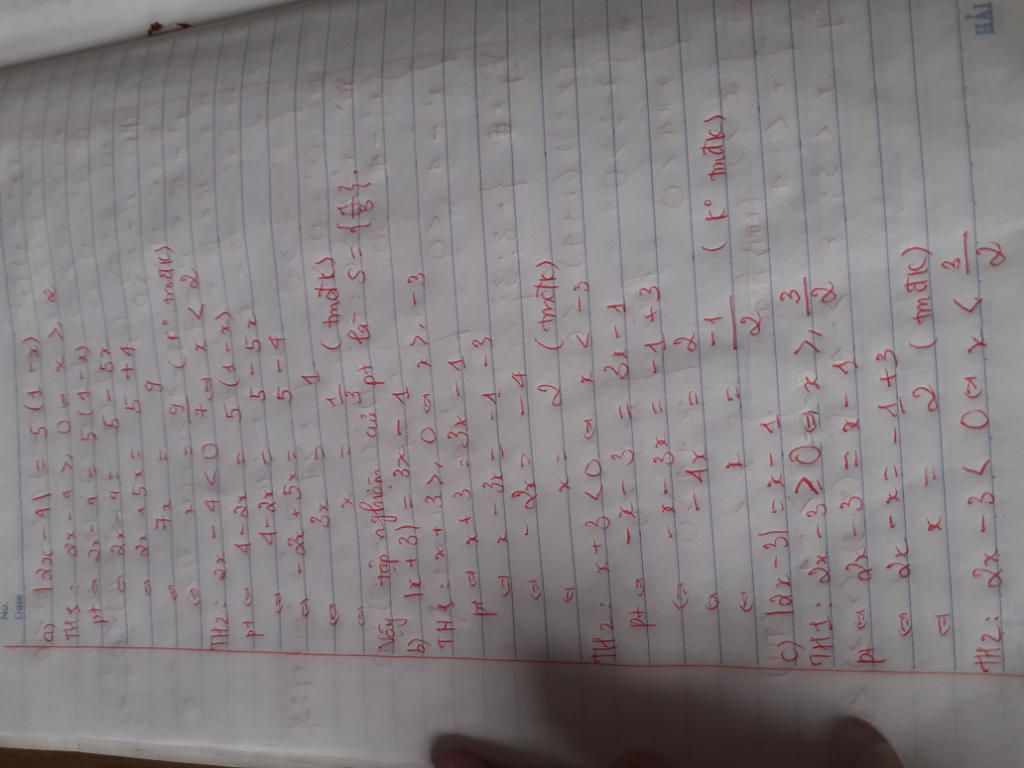 No.
Date
a) |2x - 4| = 5(1-x)
TH1: 2x - 4 ≥ 0 ⇔ x ≥ 2
pt ⇔ 2x - 4 = 5(1-x)
⇔ 2x - 4 = 5 - 5x
⇔ 2x + 5x = 5 + 4
⇔ 7x = 9
⇔ x = 9/7 (k° tmđk)
TH2: 2x - 4 < 0 ⇔ x < 2
pt ⇔ 4 - 2x = 5(1-x)
⇔ 4 - 2x = 5 - 5x
⇔ -2x + 5x = 5 - 4
⇔ 3x = 1
⇔ x = 1/3 (tmđk)
Vậy tập nghiệm của pt là: S = {1/3}.
b) |x + 3| = 3x - 1
TH1: x + 3 ≥ 0 ⇔ x ≥ -3
pt ⇔ x + 3 = 3x - 1
⇔ x - 3x = -1 - 3
⇔ -2x = -4
⇔ x = 2 (tmđk)
TH2: x + 3 < 0 ⇔ x < -3
pt ⇔ -x - 3 = 3x - 1
⇔ -x - 3x = -1 + 3
⇔ -4x = 2
⇔ x = -1/2 (k° tmđk)
c) |2x - 3| = x - 1
TH1: 2x - 3 ≥ 0 ⇔ x ≥ 3/2
pt ⇔ 2x - 3 = x - 1
⇔ 2x - x = -1 + 3
⇔ x = 2 (tmđk)
TH2: 2x - 3 < 0 ⇔ x < 3/2
HẢI